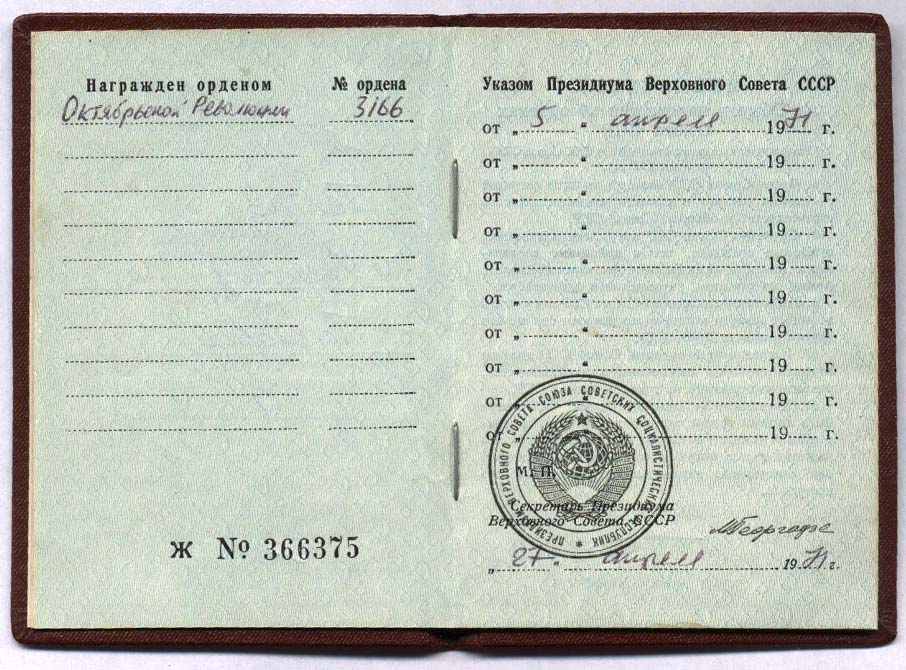 Награжден орденом № ордена
Октябрьской Революции 3166
Ж № 366375
Указом Президиума Верховного Совета СССР
от „ 5 “ апреля 1971 г.
от „ “ 19 г.
от „ “ 19 г.
от „ “ 19 г.
от „ “ 19 г.
от „ “ 19 г.
от „ “ 19 г.
от „ “ 19 г.
от „ “ 19 г.
от „ “ 19 г.
ПРЕЗИДИУМ ВЕРХОВНОГО СОВЕТА СОЮЗА СОВЕТСКИХ СОЦИАЛИСТИЧЕСКИХ РЕСПУБЛИК
М. П.
Секретарь Президиума
Верховного Совета СССР МГеоргадзе
„ 27 “ апреля 1971 г.